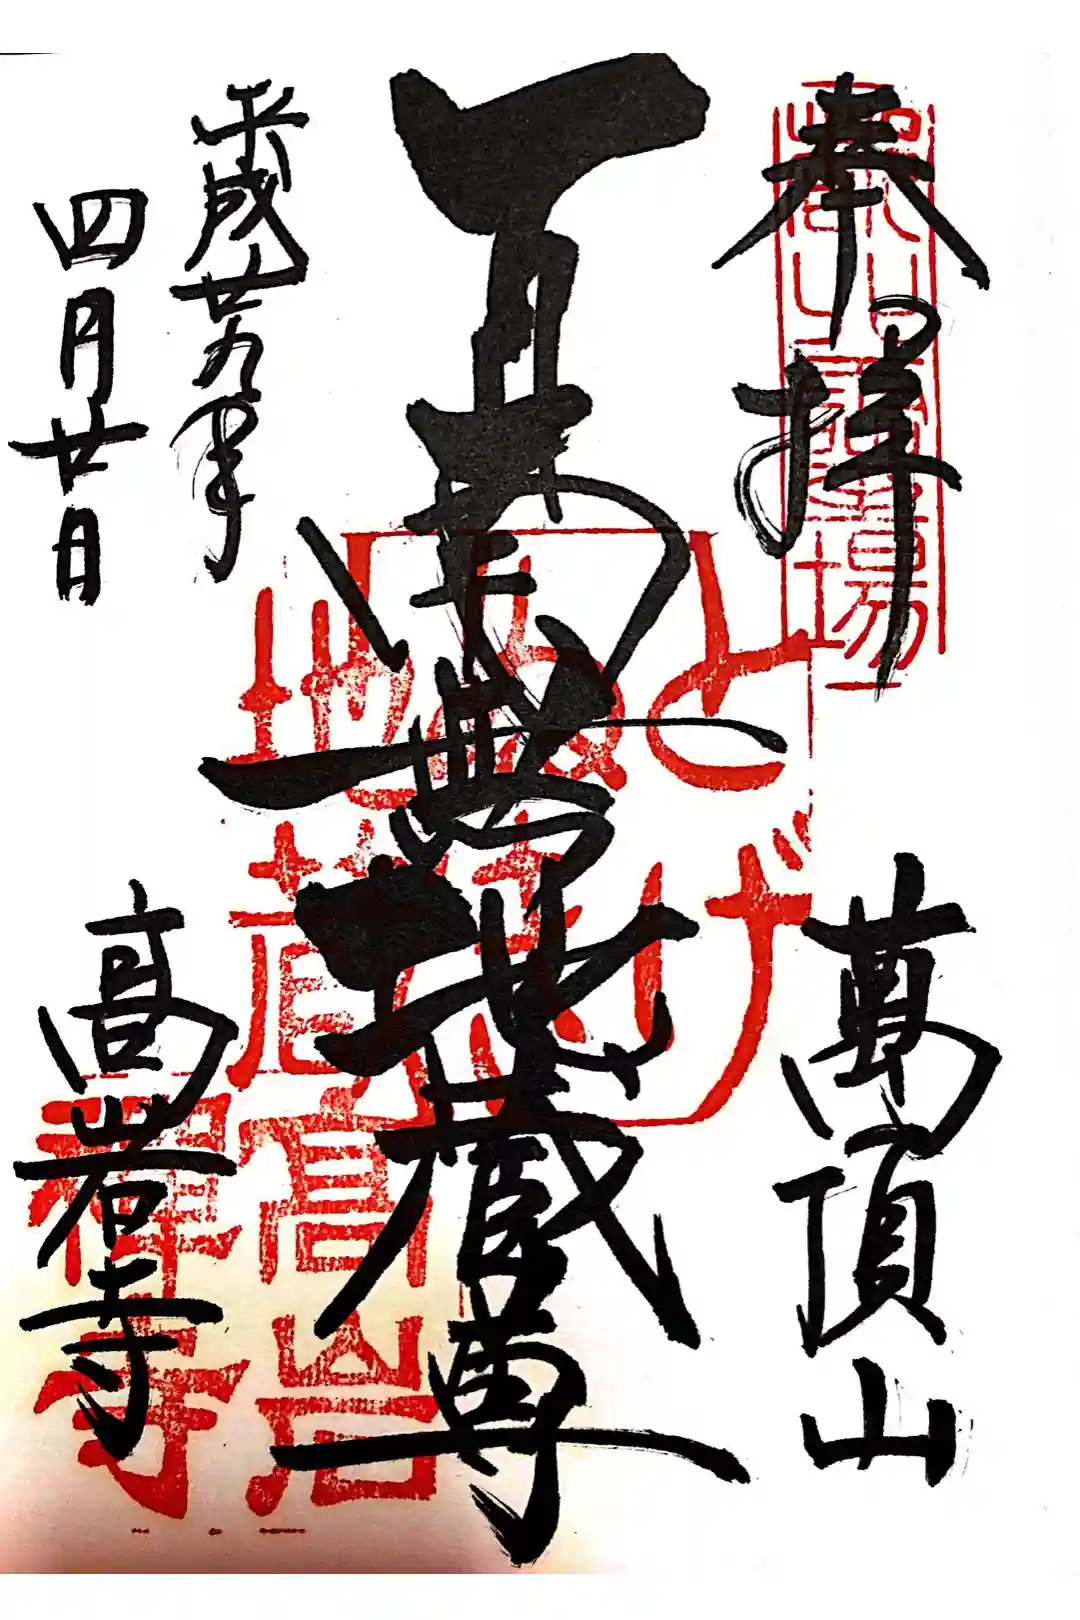 奉拝
萬頂山
南無地蔵尊
平成廿九年
四月廿日
高岩寺
とげ
ぬき
地蔵
高岩
禅寺